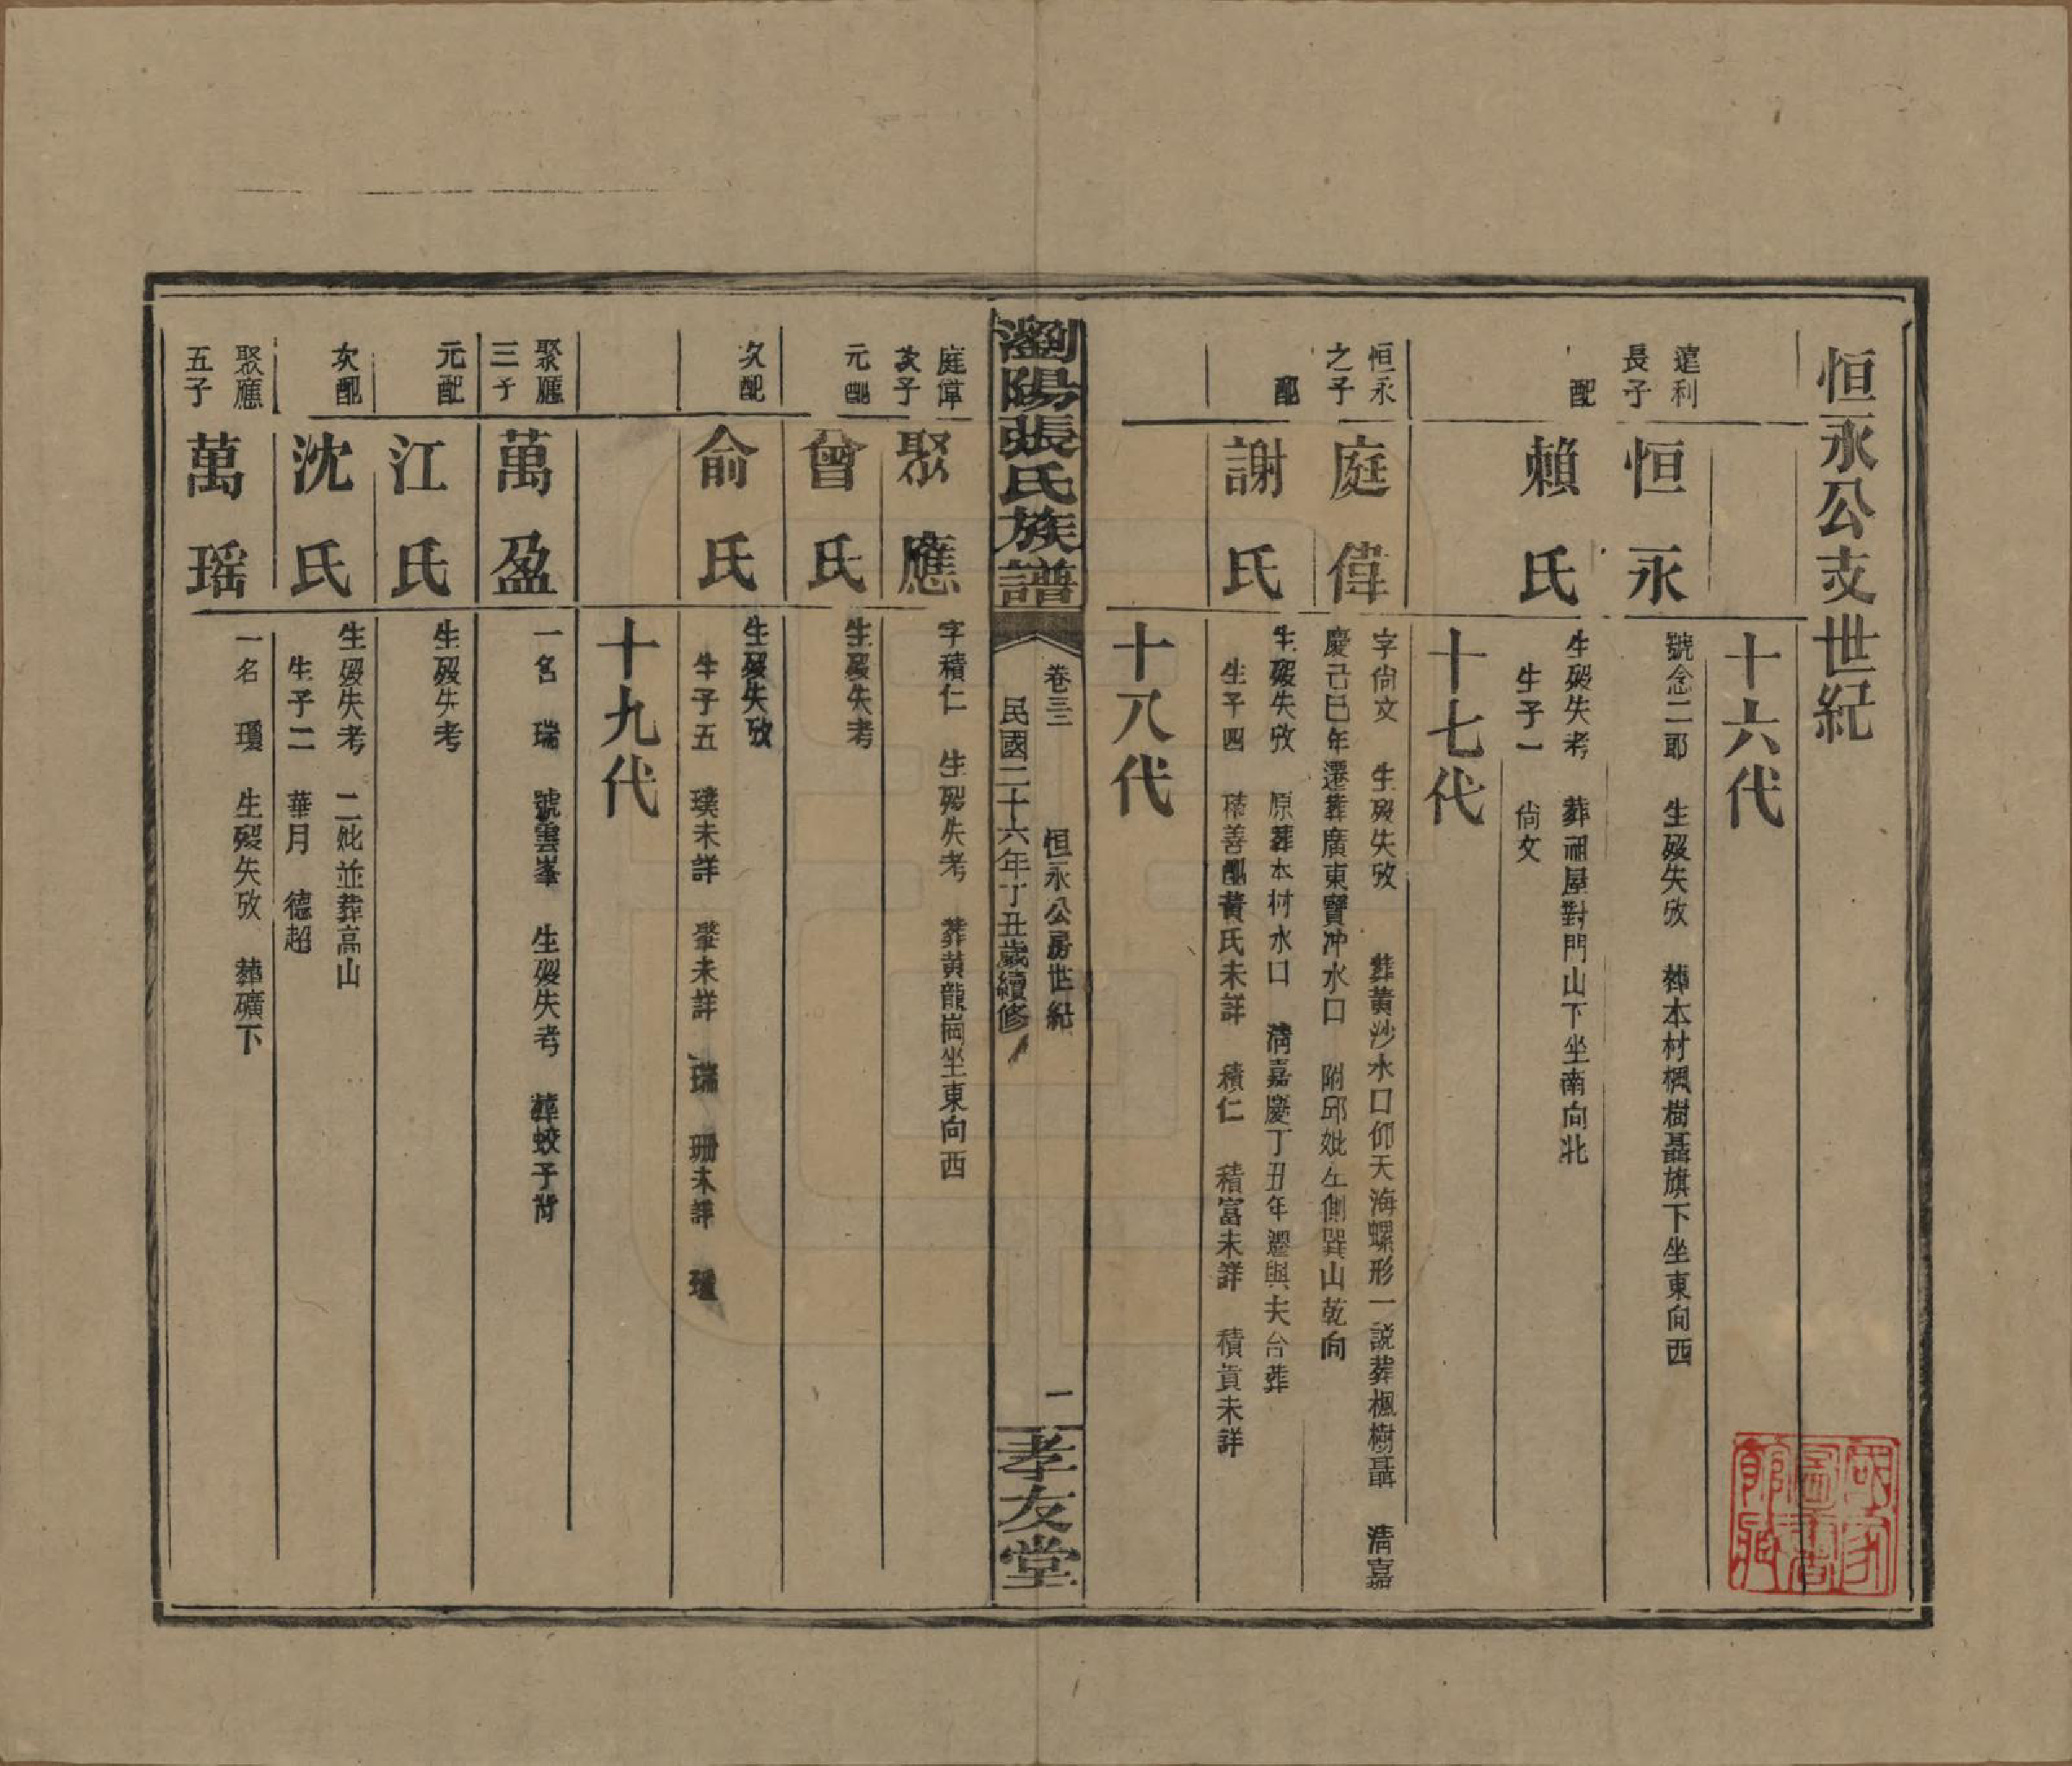 恒永公支世紀
十六代
遠利
長子
恒永
號念二郎　生殁失攷　葬本村楓樹聶旗下坐東向西
配
賴氏
生殁失考　葬祖屋對門山下坐南向北
生子一　尙文
十七代
恒永
之子
庭偉
字尙文　生殁失攷　葬黃沙水口仰天海螺形一説葬楓樹聶　淸嘉
慶己巳年遷葬廣東寶冲水口　附邱妣左側巽山乾向
配
謝氏
生殁失攷　原葬本村水口　淸嘉慶丁丑年遷與夫合葬
生子四　積善配黃氏未詳　積仁　積富未詳　積貴未詳
十八代
瀏陽張氏族譜
卷三二　恒永公房世紀　一
民國二十六年丁丑歲續修
孝友堂
庭偉
次子
聚應
字積仁　生殁失考　葬黃龍崗坐東向西
元配
曾氏
生殁失考
次配
俞氏
生殁失攷
生子五　璞未詳　肇未詳　瑞　珊未詳　瓊
十九代
聚應
三子
萬盈
一名　瑞　號雲峯　生殁失考　葬蛟子背
元配
江氏
生殁失考
次配
沈氏
生殁失考　二妣並葬高山
生子二　華月　德超
聚應
五子
萬瑶
一名　瓊　生殁失攷　葬礦下
國家
圖書
館藏